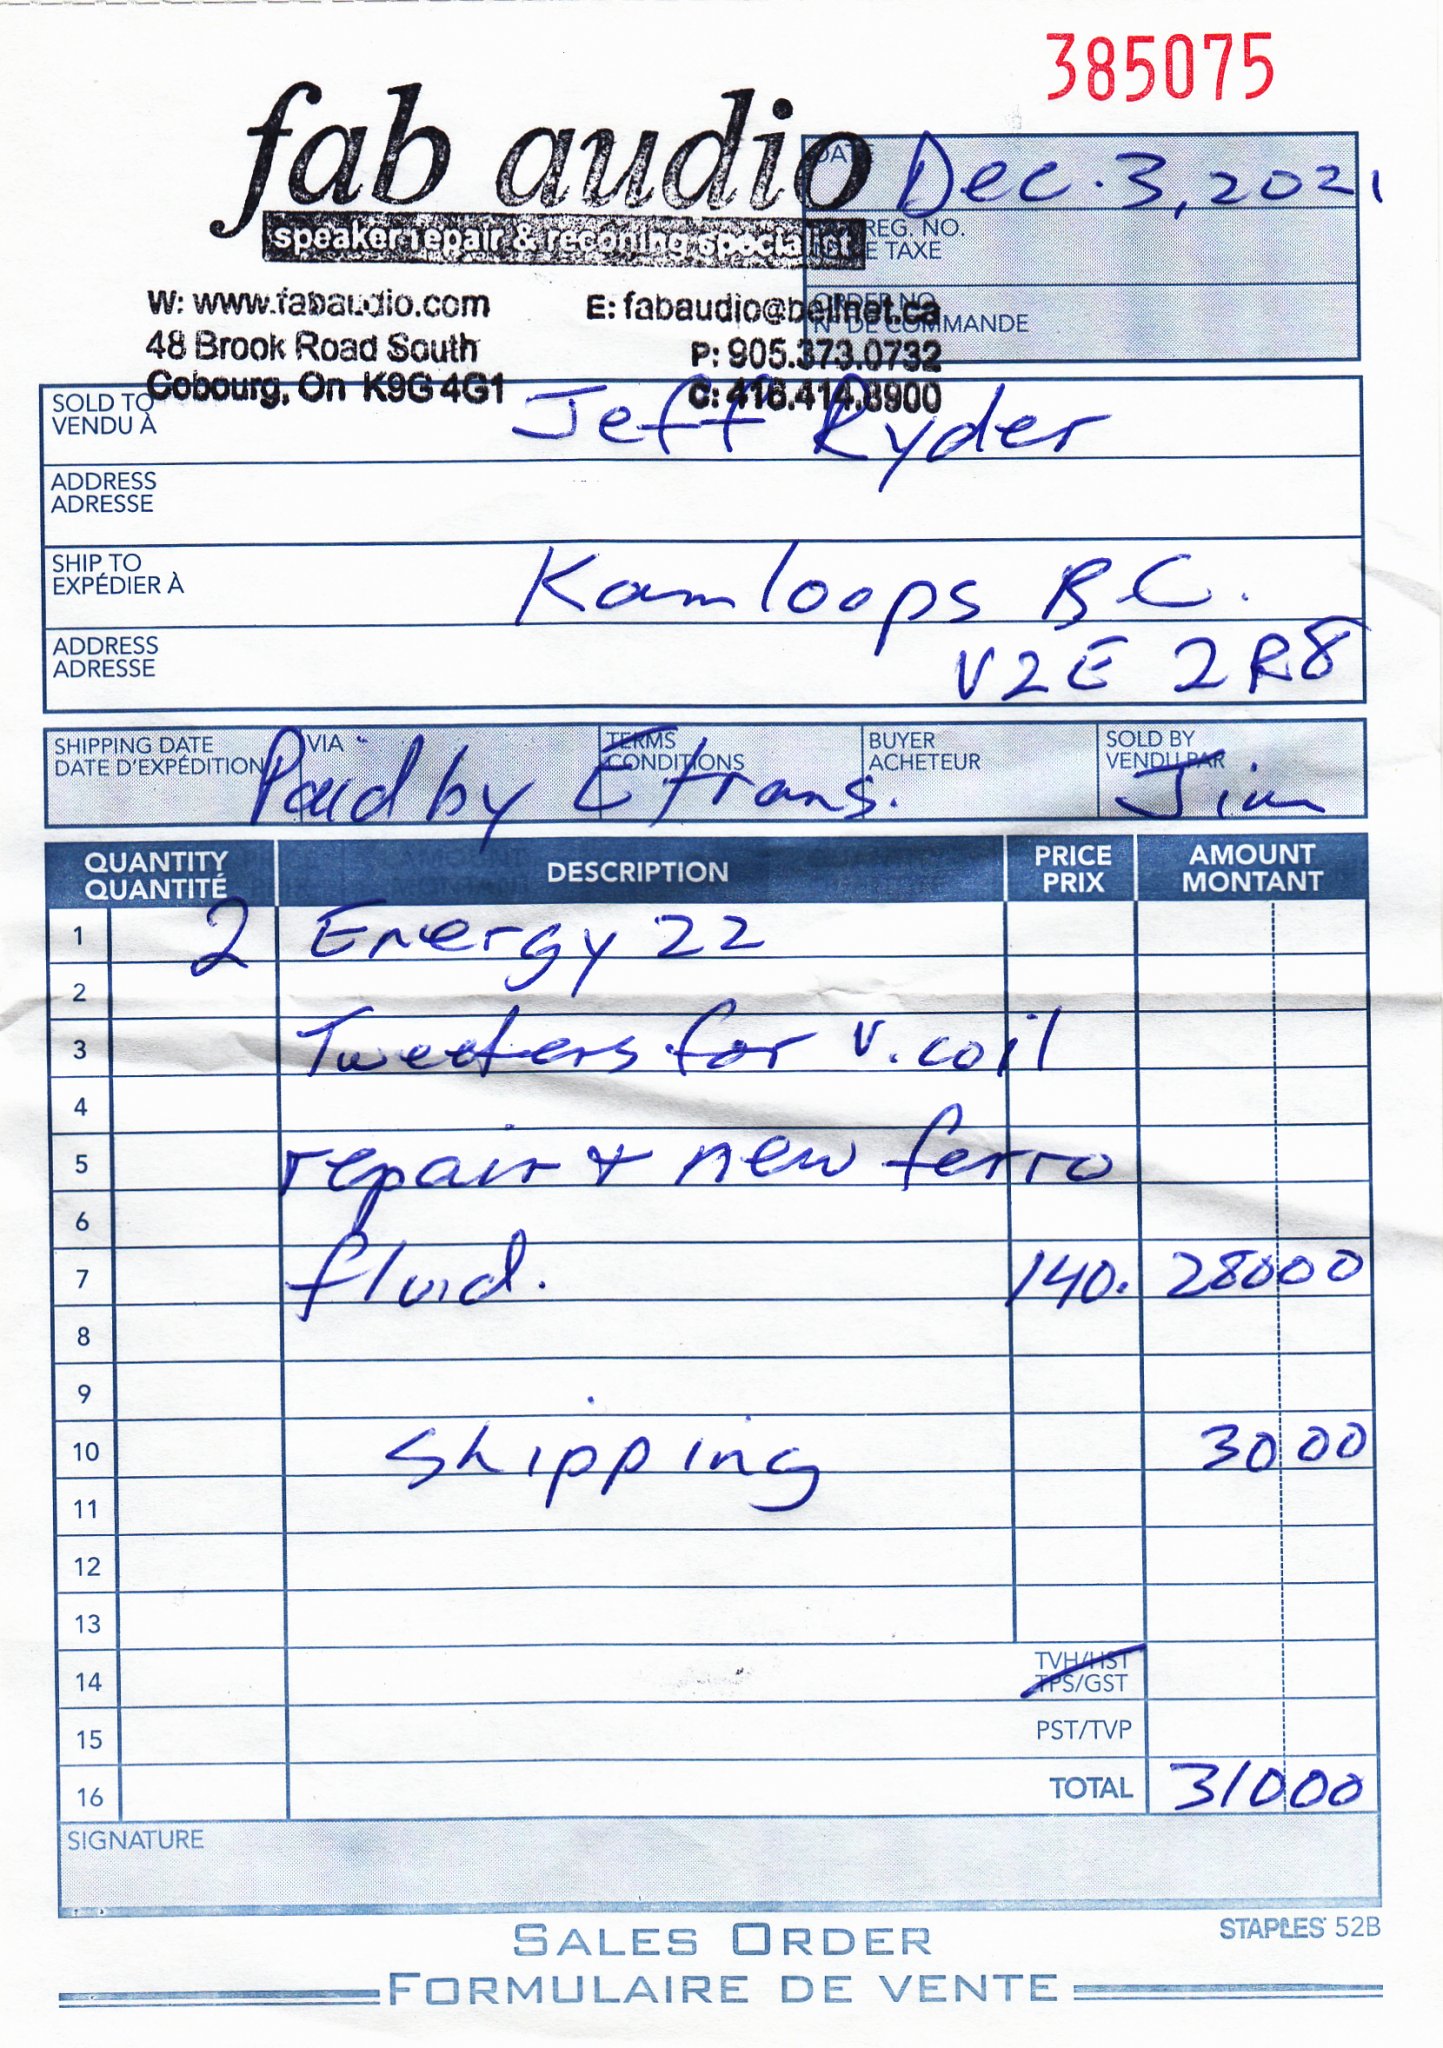 385075
fab audio
speaker repair & reconing specialist
W: www.fabaudio.com
48 Brook Road South
Cobourg, On K9G 4G1
E: fabaudio@bellnet.ca
P: 905.373.0732
C: 416.414.8900
DATE Dec. 3, 2021
REG. NO.
DE TAXE
ORDER NO.
N° DE COMMANDE
SOLD TO
VENDU À
Jeff Ryder
ADDRESS
ADRESSE
SHIP TO
EXPÉDIER À
Kamloops BC.
ADDRESS
ADRESSE
V2E 2R8
SHIPPING DATE
DATE D'EXPÉDITION
VIA
TERMS
CONDITIONS
BUYER
ACHETEUR
SOLD BY
VENDU PAR
Paid by Etrans. Jim
QUANTITY
QUANTITÉ
DESCRIPTION
PRICE
PRIX
AMOUNT
MONTANT
1 2 Energy 22
2
3 Tweeters for v. coil
4
5 repair + new ferro
6
7 fluid. 140. 28000
8
9
10 shipping 3000
11
12
13
14 TVH/HST
TPS/GST
15 PST/TVP
16 TOTAL 31000
SIGNATURE
SALES ORDER
STAPLES 52B
FORMULAIRE DE VENTE